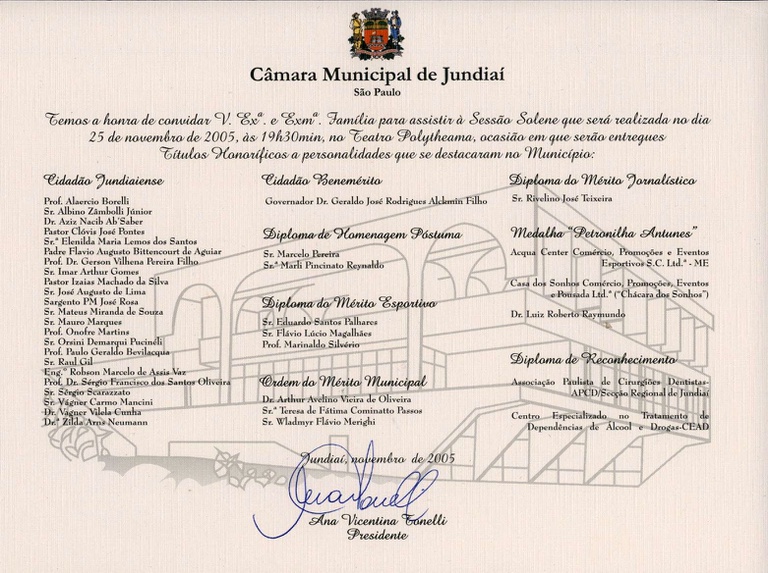 Câmara Municipal de Jundiaí
São Paulo
Temos a honra de convidar V. Exª. e Exmª. Família para assistir à Sessão Solene que será realizada no dia
25 de novembro de 2005, às 19h30min, no Teatro Polytheama, ocasião em que serão entregues
Títulos Honoríficos a personalidades que se destacaram no Município:
Cidadão Jundiaiense
Prof. Alaercio Borelli
Sr. Albino Zâmbolli Júnior
Dr. Aziz Nacib Ab'Saber
Pastor Clóvis José Pontes
Sr.ª Elenilda Maria Lemos dos Santos
Padre Flavio Augusto Bittencourt de Aguiar
Prof. Dr. Gerson Vilhena Pereira Filho
Sr. Imar Arthur Gomes
Pastor Izaias Machado da Silva
Sr. José Augusto de Lima
Sargento PM José Rosa
Sr. Mateus Miranda de Souza
Sr. Mauro Marques
Prof. Onofre Martins
Sr. Orsini Demarqui Pucinéli
Prof. Paulo Geraldo Bevilacqua
Sr. Raul Gil
Eng.º Robson Marcelo de Assis Vaz
Prof. Dr. Sérgio Francisco dos Santos Oliveira
Sr. Sérgio Scarazzato
Sr. Vágner Carmo Mancini
Dr. Vagner Vilela Cunha
Dr.ª Zilda Arns Neumann
Cidadão Benemérito
Governador Dr. Geraldo José Rodrigues Alckmin Filho
Diploma de Homenagem Póstuma
Sr. Marcelo Pereira
Sr.ª Marli Pincinato Reynaldo
Diploma do Mérito Esportivo
Sr. Eduardo Santos Palhares
Sr. Flávio Lúcio Magalhães
Prof. Marinaldo Silvério
Ordem do Mérito Municipal
Dr. Arthur Avelino Vieira de Oliveira
Sr.ª Teresa de Fátima Cominatto Passos
Sr. Wladmyr Flávio Merighi
Diploma do Mérito Jornalístico
Sr. Rivelino José Teixeira
Medalha “Petronilha Antunes”
Acqua Center Comércio, Promoções e Eventos
Esportivos S.C. Ltd.ª - ME
Casa dos Sonhos Comércio, Promoções, Eventos
e Pousada Ltd.ª (“Chácara dos Sonhos”)
Dr. Luiz Roberto Raymundo
Diploma de Reconhecimento
Associação Paulista de Cirurgiões Dentistas-
APCD/Secção Regional de Jundiaí
Centro Especializado no Tratamento de
Dependências de Álcool e Drogas-CEAD
Jundiaí, novembro de 2005
Ana Vicentina Tonelli
Presidente